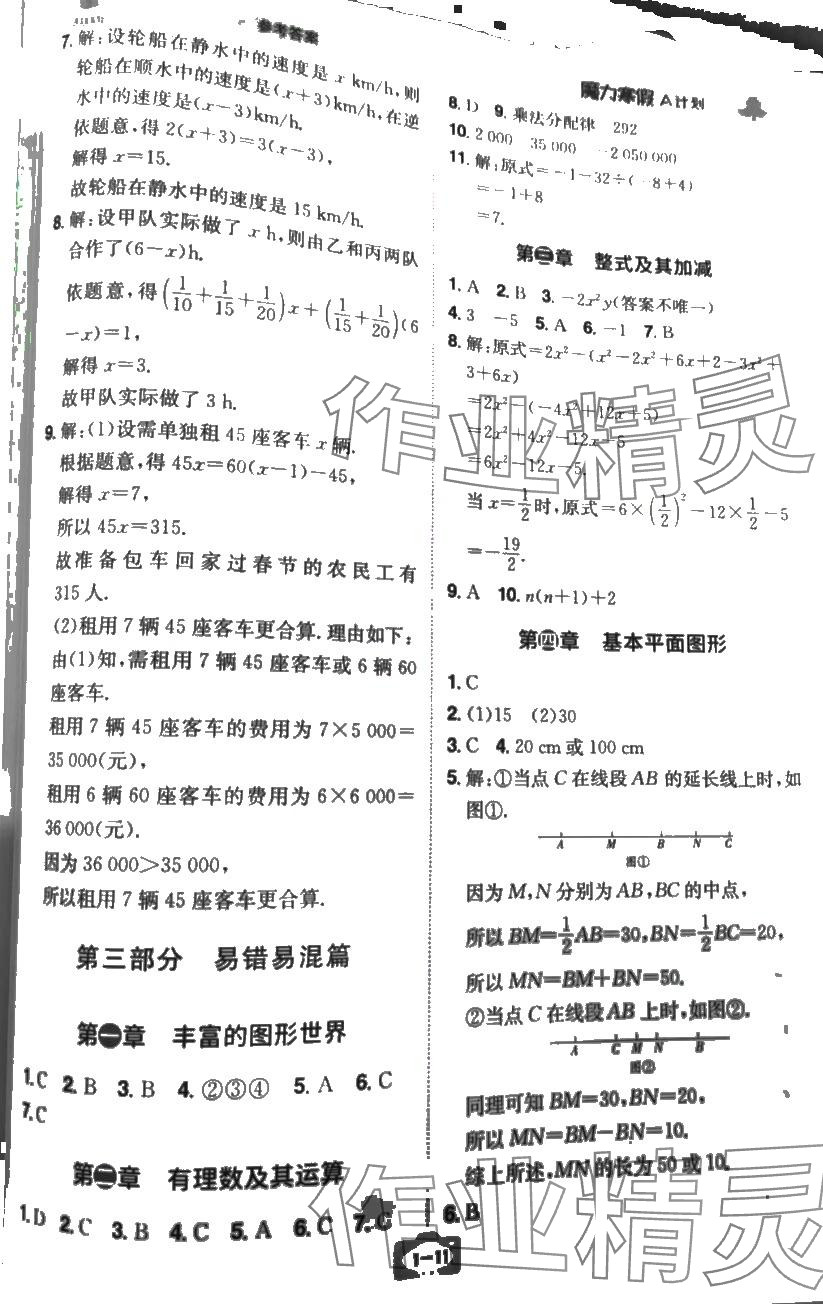 参考答案
7. 解:设轮船在静水中的速度是 x km/h,则
轮船在顺水中的速度是(x+3)km/h,在逆
水中的速度是(x-3)km/h.
依题意,得 2(x+3)=3(x-3),
解得 x=15.
故轮船在静水中的速度是 15 km/h.
8. 解:设甲队实际做了 x h,则由乙和丙两队
合作了(6-x)h.
依题意,得(1/10+1/15+1/20)x+(1/15+1/20)(6
-x)=1,
解得 x=3.
故甲队实际做了 3 h.
9. 解:(1)设需单独租 45 座客车 x 辆.
根据题意,得 45x=60(x-1)-45,
解得 x=7,
所以 45x=315.
故准备包车回家过春节的农民工有
315 人.
(2)租用 7 辆 45 座客车更合算.理由如下:
由(1)知,需租用 7 辆 45 座客车或 6 辆 60
座客车.
租用 7 辆 45 座客车的费用为 7×5 000=
35 000(元),
租用 6 辆 60 座客车的费用为 6×6 000=
36 000(元).
因为 36 000>35 000,
所以租用 7 辆 45 座客车更合算.
第三部分 易错易混篇
第一章 丰富的图形世界
1. C 2. B 3. B 4. ②③④ 5. A 6. C
7. C
第二章 有理数及其运算
1. D 2. C 3. B 4. C 5. A 6. C 7. C
魔力寒假 A计划
8. 1) 9. 乘法分配律 292
10. 2 000 35 000 -2 050 000
11. 解:原式=-1-32÷(-8+4)
=-1+8
=7.
第三章 整式及其加减
1. A 2. B 3. -2x²y(答案不唯一)
4. 3 -5 5. A 6. -1 7. B
8. 解:原式=2x²-(x²-2x²+6x+2-3x²+
3+6x)
=2x²-(-4x²+12x+5)
=2x²+4x²-12x-5
=6x²-12x-5.
当 x=1/2时,原式=6×(1/2)²-12×1/2-5
=-19/2.
9. A 10. n(n+1)+2
第四章 基本平面图形
1. C
2. (1)15 (2)30
3. C 4. 20 cm 或 100 cm
5. 解:①当点 C 在线段 AB 的延长线上时,如
图①.
A M B N C
图①
因为 M,N 分别为 AB,BC 的中点,
所以 BM=1/2AB=30,BN=1/2BC=20,
所以 MN=BM+BN=50.
②当点 C 在线段 AB 上时,如图②.
A C M N B
图②
同理可知 BM=30,BN=20,
所以 MN=BM-BN=10.
综上所述,MN 的长为 50 或 10.
6. B
1-11
作业精灵
作业精灵